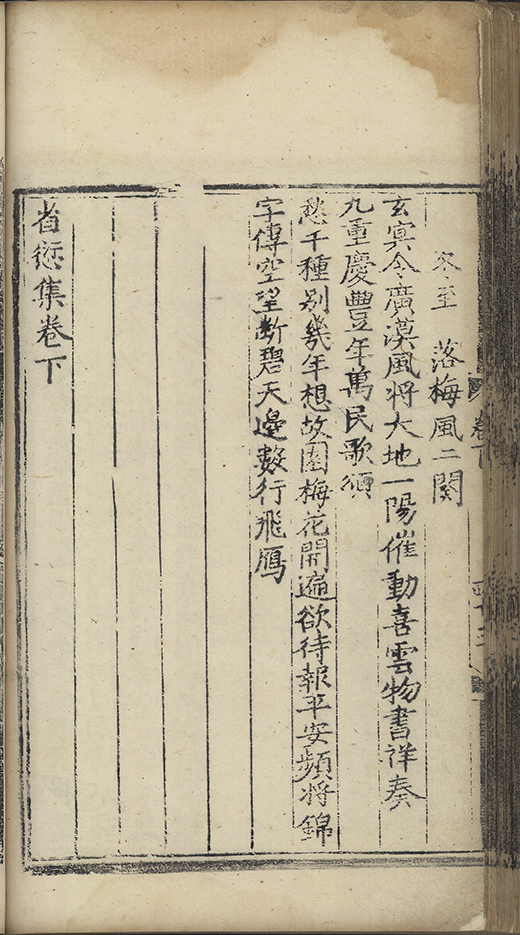 冬至 落梅風二闋
玄冥令廣漠風將大地一陽催動喜雲物書祥奏
九重慶豐年萬民歌頌
愁千種别幾年想故園梅花開遍欲待報平安頻將錦
字傳空望断碧天邊數行飛鴈
省愆集卷下
卷下